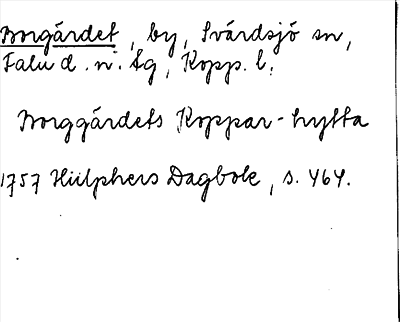 Borgärdet, by, Svärdsjö sn,
Falu d. n. tg, Kopp. l.
Borggärdets Koppar-hytta
1757 Hülphers Dagbok, s. 464.